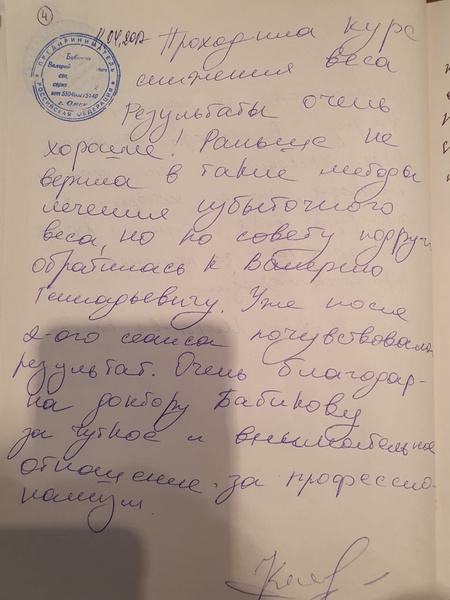 4
11.04.2017 Проходила курс
снижения веса
Результаты очень
хорошие! Раньше не
верила в такие методы
лечения избыточного
веса, но по совету подруги
обратилась к Валерию
Геннадьевичу. Уже после
2-ого сеанса почувствовала
результат. Очень благодар-
на доктору Бабикову
за чуткое и внимательное
отношение. за профессио-
нализм.
ПРЕДПРИНИМАТЕЛЬ
РОССИЙСКАЯ ФЕДЕРАЦИЯ
Валерий
г. Омск